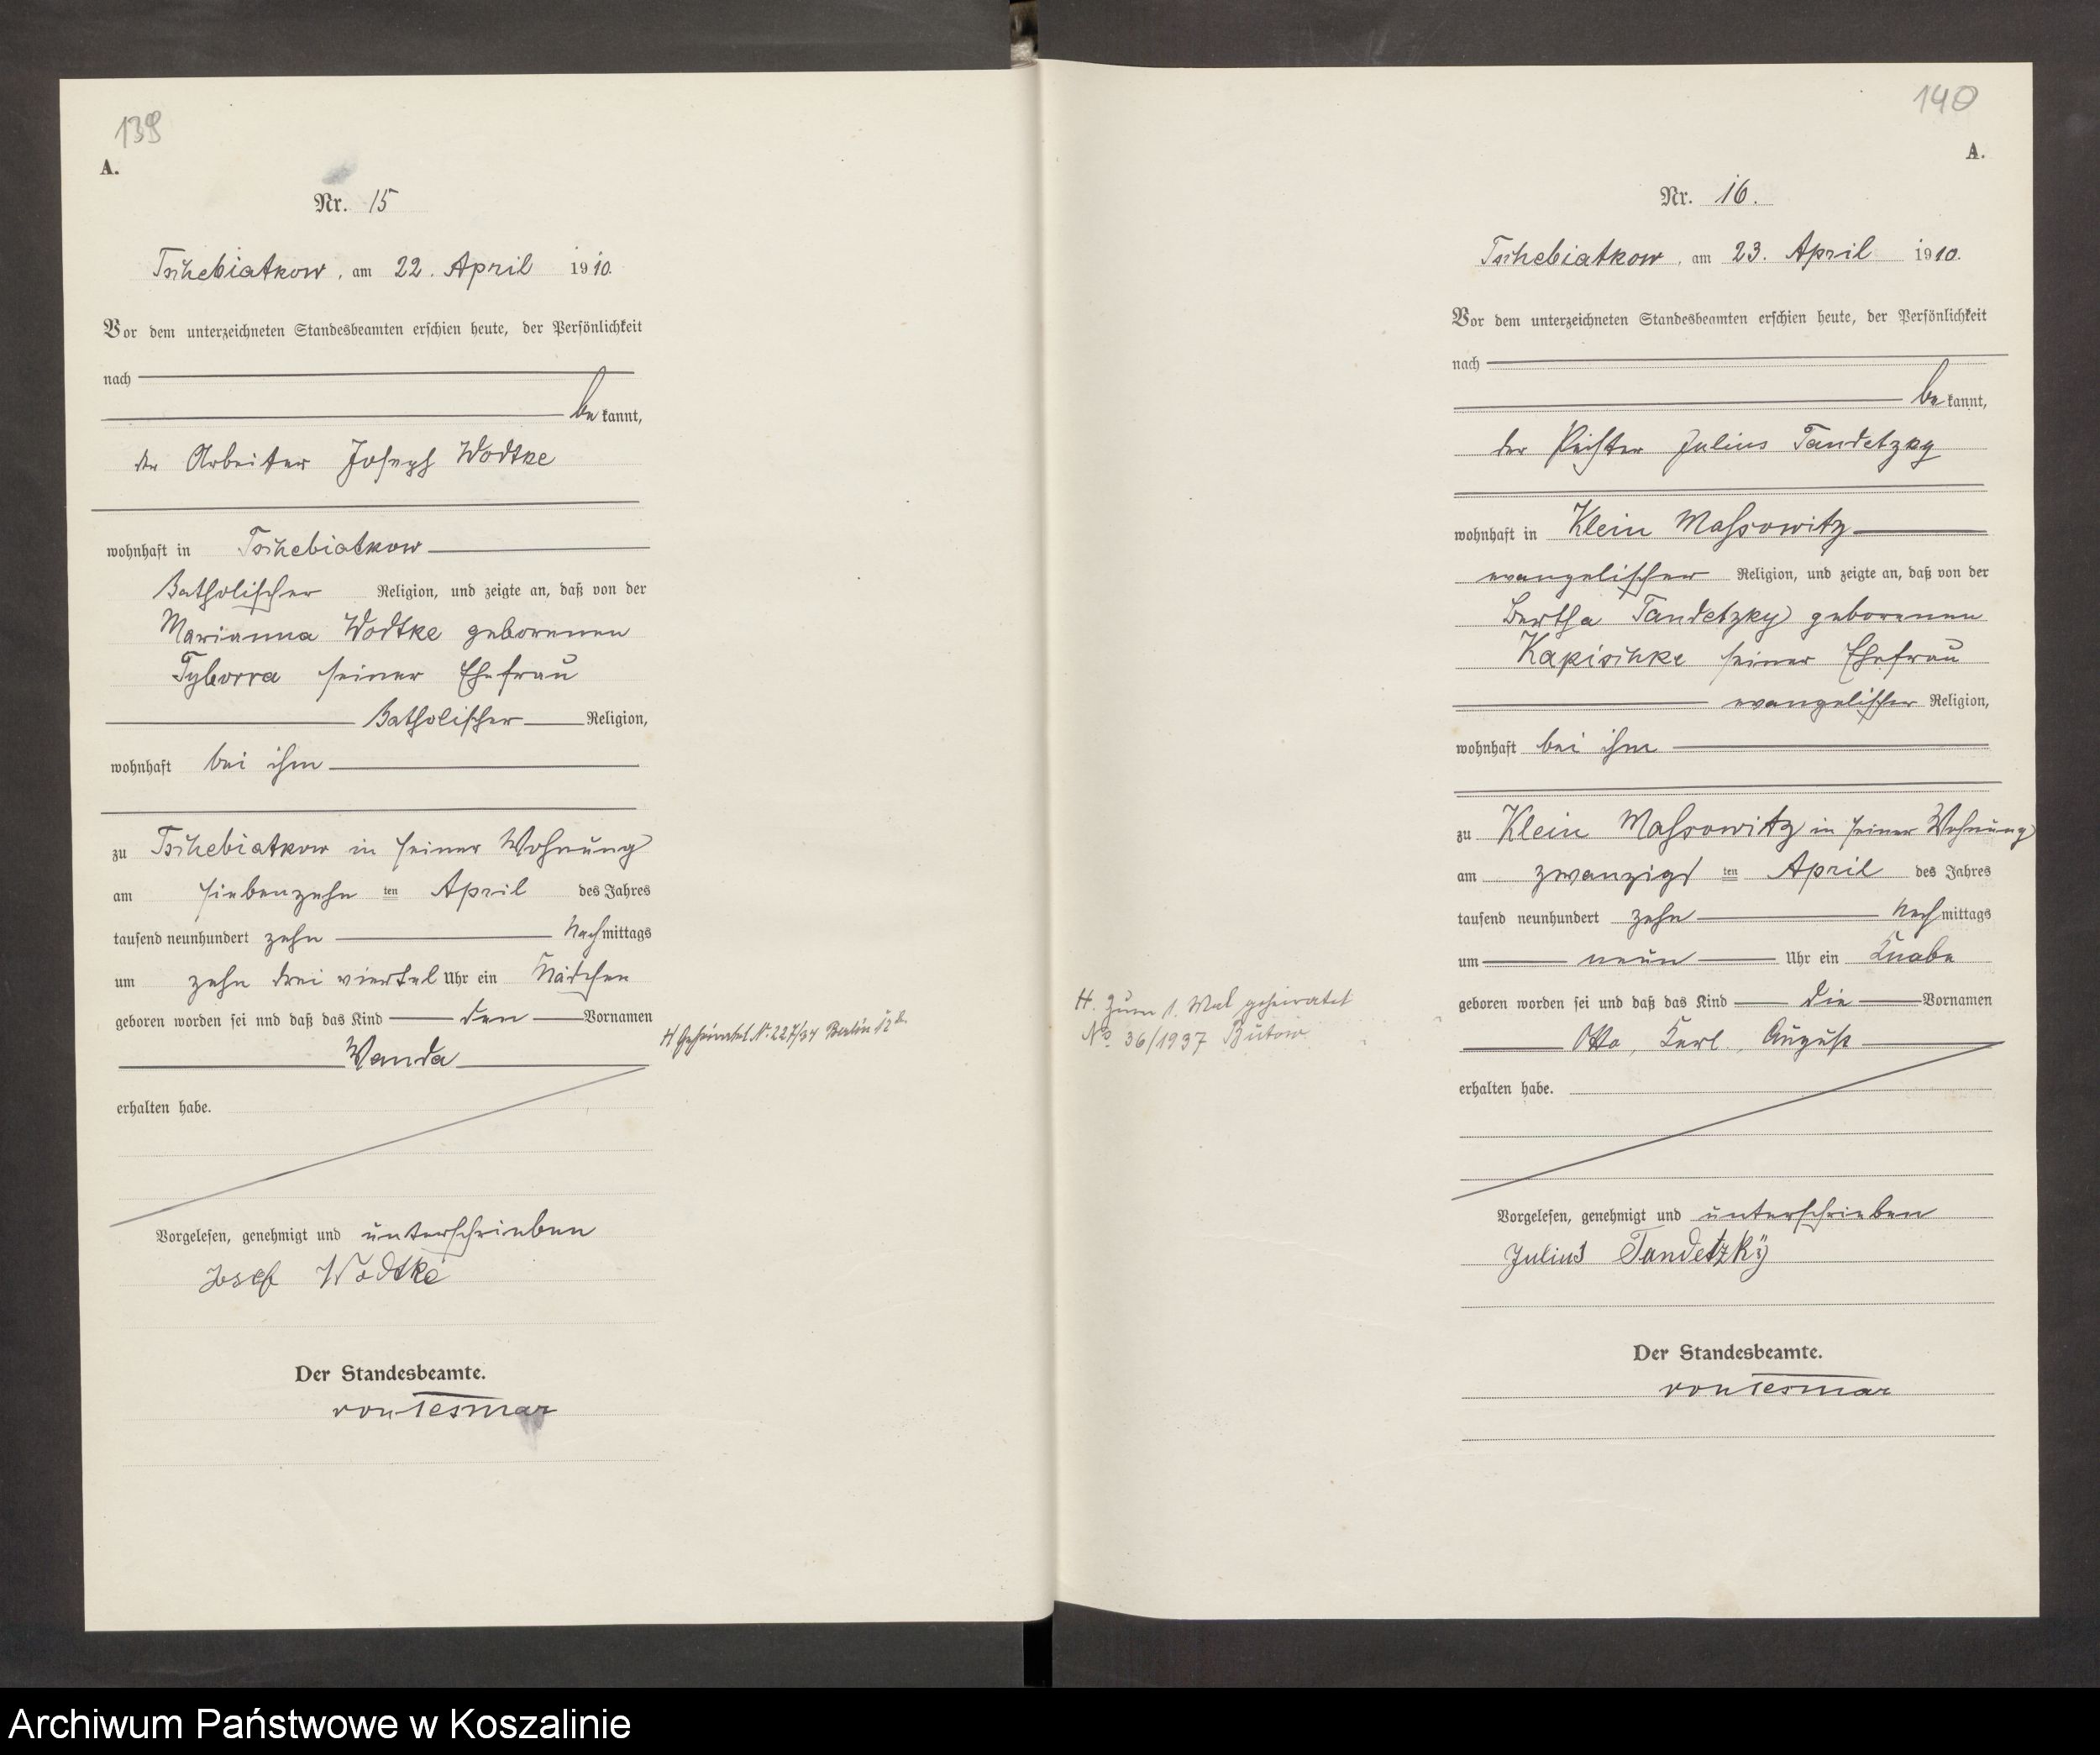 139
A.
Nr. 15
Tschebiatkow, am 22. April 1910.
Vor dem unterzeichneten Standesbeamten erschien heute, der Persönlichkeit
nach
be kannt,
der Arbeiter Joseph Wodtke
wohnhaft in Tschebiatkow
Katholischer Religion, und zeigte an, daß von der
Marianna Wodtke geborenen
Tyborra seiner Ehefrau
Katholischer Religion,
wohnhaft bei ihm
zu Tschebiatkow in seiner Wohnung
am siebenzehn ten April des Jahres
tausend neunhundert zehn Nachmittags
um zehn drei viertel Uhr ein Mädchen
geboren worden sei und daß das Kind den Vornamen
Wanda
erhalten habe.
H Geheiratet Nr. 227/34 Berlin 12
Vorgelesen, genehmigt und unterschrieben
Josef Wodtke
Der Standesbeamte.
von Tesmar
140
A.
Nr. 16.
Tschebiatkow, am 23. April 1910.
Vor dem unterzeichneten Standesbeamten erschien heute, der Persönlichkeit
nach
be kannt,
der Pächter Julius Tandetzky
wohnhaft in Klein Massowitz
evangelischer Religion, und zeigte an, daß von der
Bertha Tandetzky geborenen
Kapischke seiner Ehefrau
evangelischer Religion,
wohnhaft bei ihm
zu Klein Massowitz in seiner Wohnung
am zwanzigs ten April des Jahres
tausend neunhundert zehn Nachmittags
um neun Uhr ein Knabe
geboren worden sei und daß das Kind die Vornamen
Otto, Karl, August
erhalten habe.
H. Zum 1. Mal geheiratet
No. 36/1937 Bütow
Vorgelesen, genehmigt und unterschrieben
Julius Tandetzkÿ
Der Standesbeamte.
von Tesmar
Archiwum Państwowe w Koszalinie